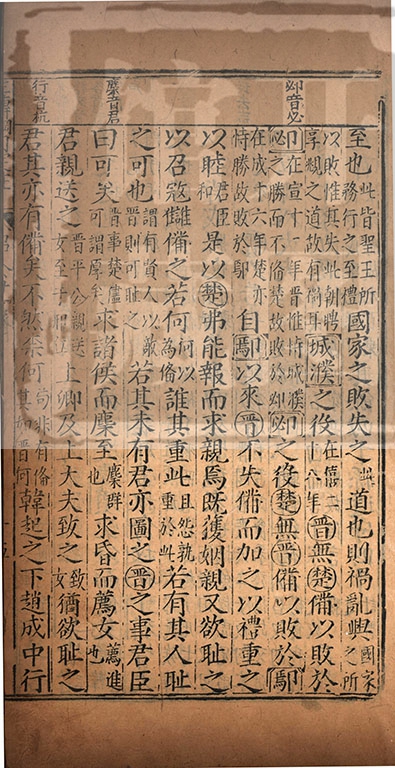 邲音必
麇音君
行音杭
至也此皆聖王所務行之至禮國家之敗失之此道也則禍亂興國家之所
以敗惟其失此朝聘享覜之道故有禍耳城濮之役在僖二十八年晉無楚備以敗於
邲在宣十二年晉惟恃城濮之勝而不備楚故敗於邲邲之役楚無晉備以敗於鄢
在成十六年楚亦恃勝故敗於鄢自鄢以來晉不失備而加之以禮重之
以睦君臣和是以楚弗能報而求親焉既獲姻親又欲恥之
以召寇讎備之若何何以為備誰其重此且怨孰重於此若有其人恥
之可也謂有賢人以敵晉則可恥之若其未有君亦圖之晉之事君臣
曰可矣晉事楚可謂厚矣求諸侯而麇至麇群也求昏而薦女薦進也
君親送之晉平公親送女至于邢丘上卿及上大夫致之致女猶欲恥之
君其亦有備矣不然柰何苟非有備其如晉何韓起之下趙成中行